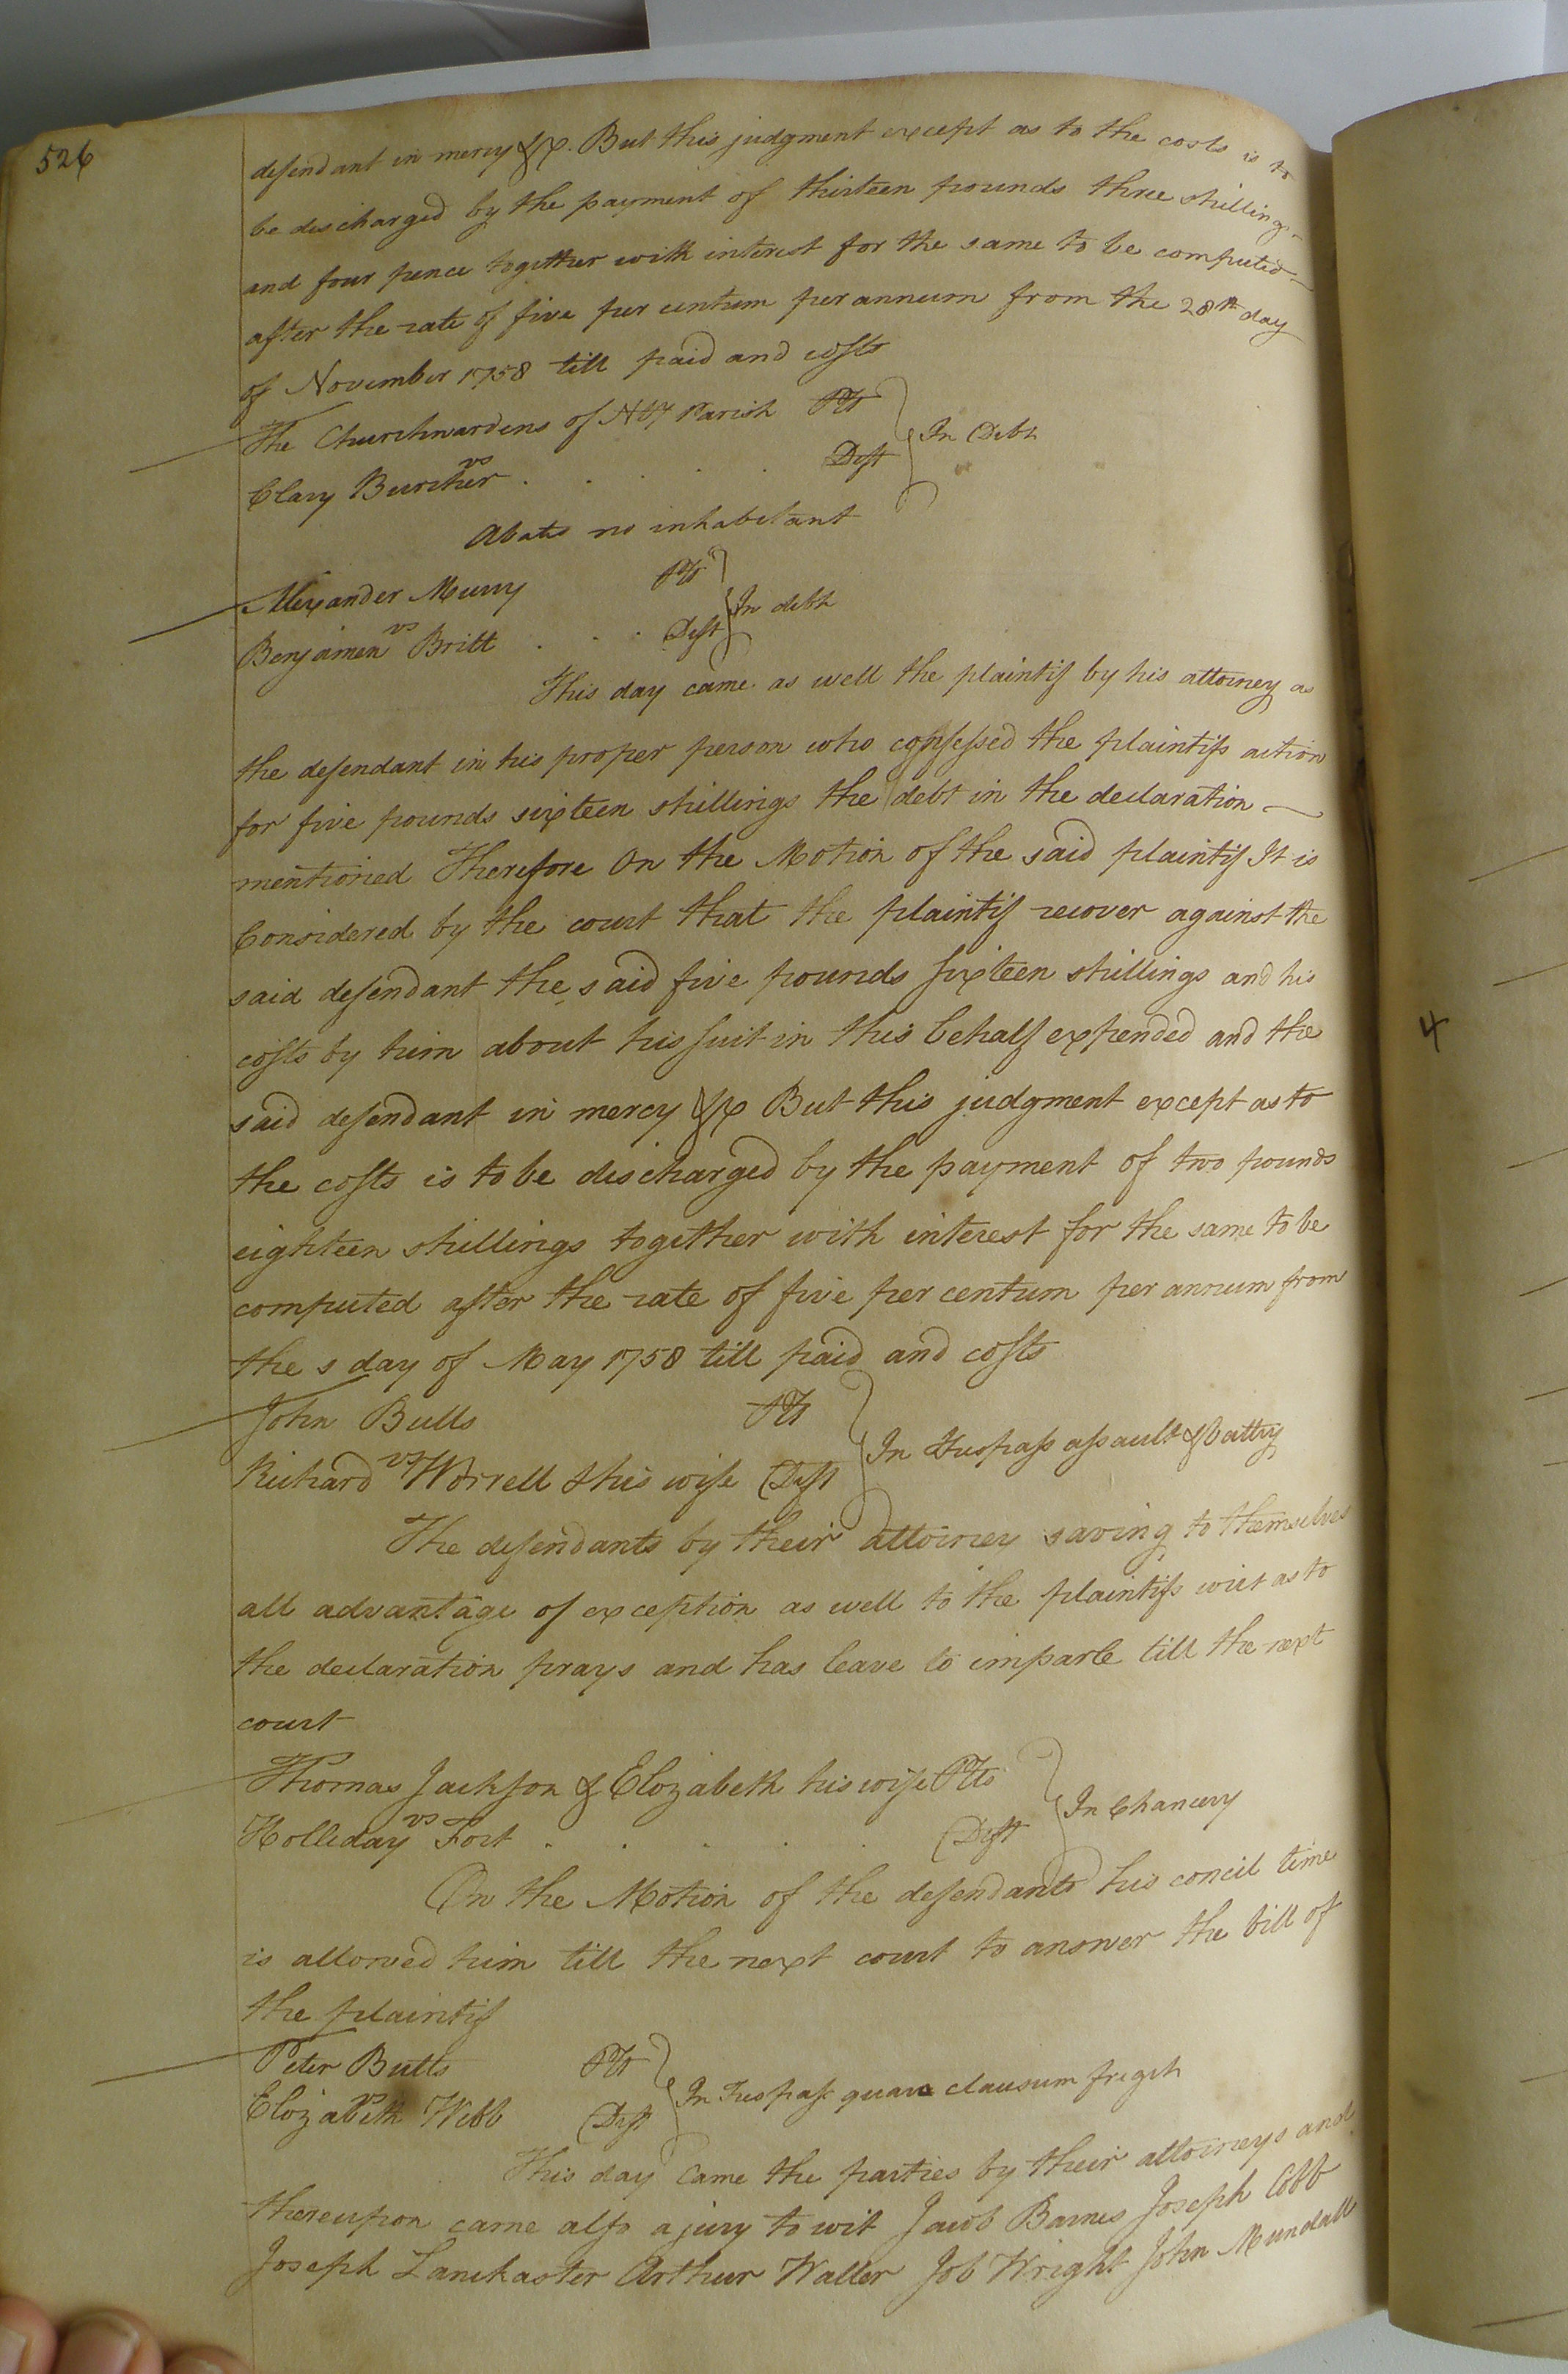 526
defendant in mercy &c. But this judgment except as to the costs is to
be discharged by the payment of thirteen pounds three shillings
and four pence together with interest for the same to be computed
after the rate of five per centum per annum from the 28th day
of November 1758 till paid and costs
The Churchwardens of Parish Plt
vs
In Debt
Clary Burcher . . . . Deft
Abates no inhabitant
Alexander Murry Plt
vs
In debt
Benjamen Britt . . . Deft
This day came as well the plaintif by his attorney as
the defendant in his proper person who confessed the plaintifs action
for five pounds sixteen shillings the debt in the declaration
mentioned Therefore On the Motion of the said plaintif It is
Considered by the court that the plaintif recover against the
said defendant the said five pounds sixteen shillings and his
costs by him about his suit in this behalf expended and the
said defendant in mercy &c But this judgment except as to
the costs is to be discharged by the payment of two pounds
eighteen shillings together with interest for the same to be
computed after the rate of five per centum per annum from
the day of May 1758 till paid and costs
John Butts Plt
vs
In Trespass assault & battry
Richard Worrell & his wife Deft
The defendants by their attorney saving to themselves
all advantage of exception as well to the plaintifs writ as to
the declaration prays and has leave to imparle till the next
court
Thomas Jackson & Elozabeth his wife Plts
vs
In Chancery
Holliday Fort . . . . . Deft
On the Motion of the defendants his concil time
is allowed him till the next court to answer the bill of
the plaintif
Peter Butts Plt
vs
In Trespass quare clausum fregit
Elozabeth Webb Deft
This day Came the parties by their attorneys and
thereupon came also a jury to wit Jacob Barnes Joseph Cobb
Joseph Lanchaster Arthur Waller Job Wright John Mundall
4